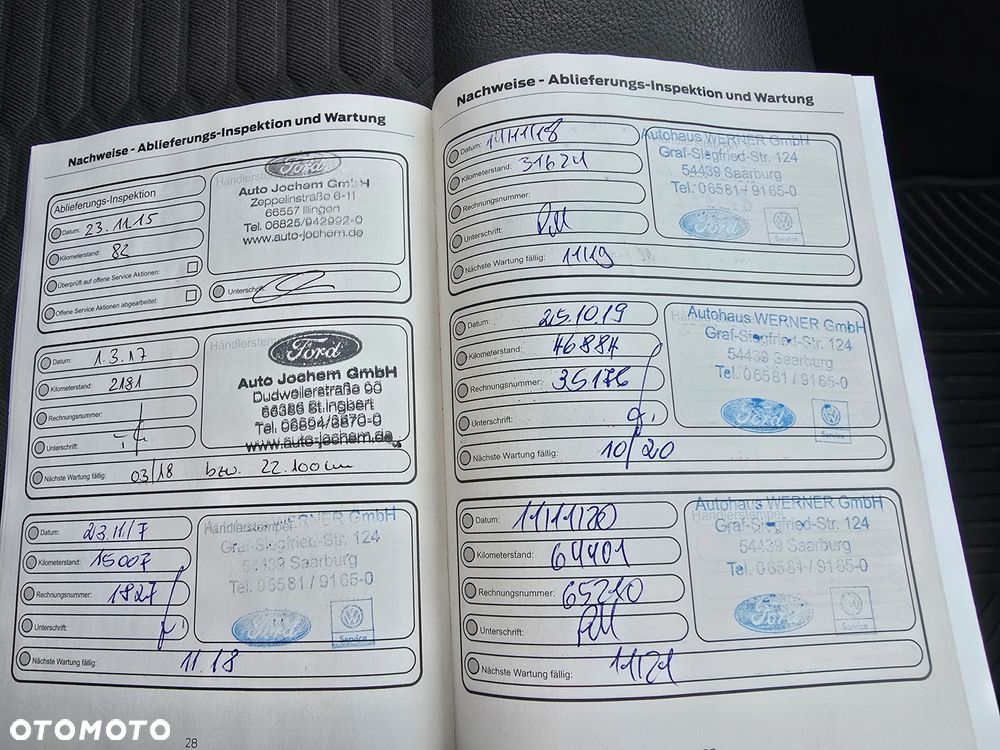 Nachweise - Ablieferungs-Inspektion und Wartung
Ablieferungs-Inspektion
Datum: 23.11.15
Kilometerstand: 82
Überprüft auf offene Service Aktionen:
Offene Service Aktionen abgearbeitet:
Ford
Auto Jochem GmbH
Zeppelinstraße 6-11
66557 Illingen
Tel. 06825/942992-0
www.auto-jochem.de
Unterschrift:
Datum: 1.3.17
Kilometerstand: 2181
Rechnungsnummer:
Unterschrift:
Nächste Wartung fällig: 03/18 bzw. 22.100 km
Händlerstempel
Ford
Auto Jochem GmbH
Dudweilerstraße 90
66386 St. Ingbert
Tel. 06894/3870-0
www.auto-jochem.de
Datum: 23.11/7
Kilometerstand: 15007
Rechnungsnummer: 1827
Unterschrift:
Nächste Wartung fällig: 11.18
Händlerstempel
Autohaus WERNER GmbH
Graf-Siegfried-Str. 124
54439 Saarburg
Tel. 06581 / 9165-0
Ford
Service
28
Nachweise - Ablieferungs-Inspektion und Wartung
Datum:
Kilometerstand: 31621
Rechnungsnummer:
Unterschrift:
Nächste Wartung fällig: 11/19
Autohaus WERNER GmbH
Graf-Siegfried-Str. 124
54439 Saarburg
Tel. 06581 / 9165-0
Ford
Service
Datum: 25.10.19
Kilometerstand: 46884
Rechnungsnummer: 35176
Unterschrift:
Nächste Wartung fällig: 10/20
Autohaus WERNER GmbH
Graf-Siegfried-Str. 124
54439 Saarburg
Tel. 06581 / 9165-0
Ford
Service
Datum: 11/11/20
Kilometerstand: 64401
Rechnungsnummer: 65270
Unterschrift:
Nächste Wartung fällig: 11/21
Händlerstempel
Autohaus WERNER GmbH
Graf-Siegfried-Str. 124
54439 Saarburg
Tel. 06581 / 9165-0
Ford
Service
OTOMOTO